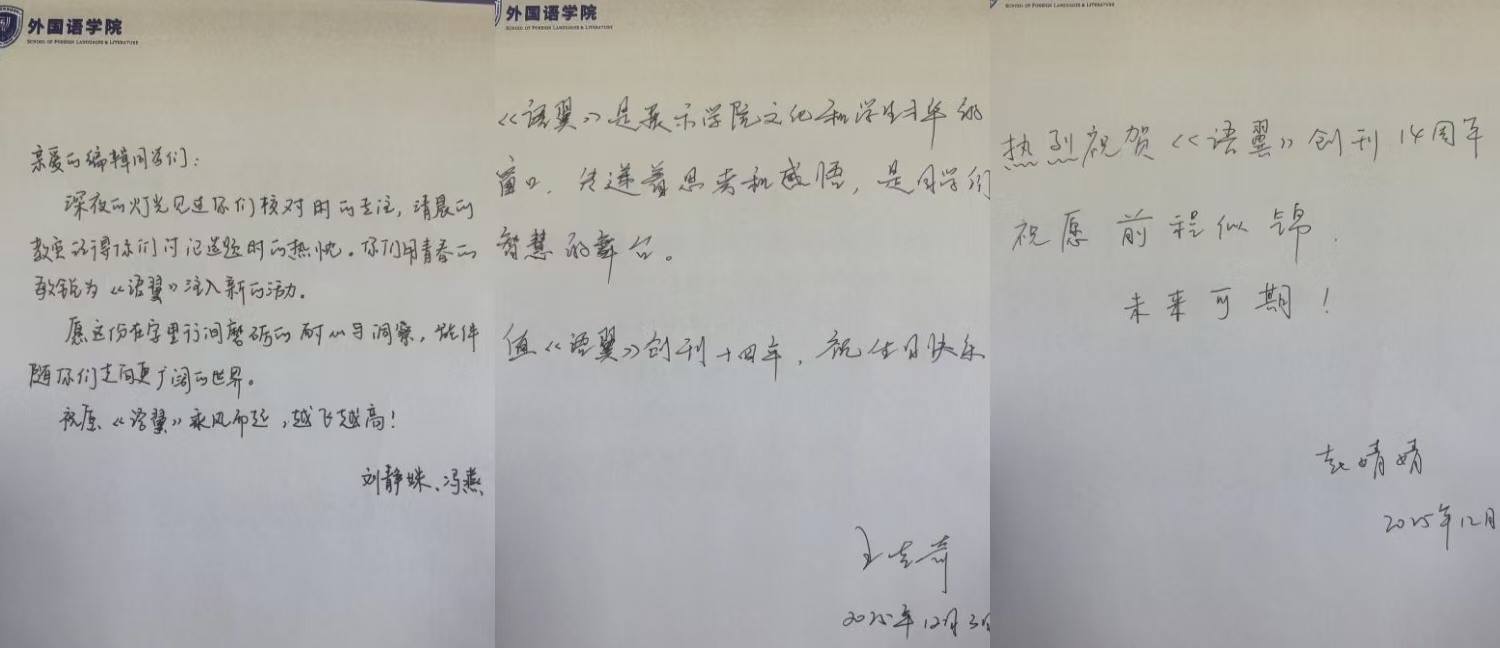 外国语学院
SCHOOL OF FOREIGN LANGUAGES & LITERATURE
亲爱的编辑同学们：
深夜的灯光见过你们核对时的专注，清晨的
教室记得你们讨论选题时的热忱。你们用青春的
敏锐为《语翼》注入新的活力。
愿这份在字里行间磨砺的耐心与洞察，能伴
随你们走向更广阔的世界。
祝愿《语翼》乘风而起，越飞越高！
刘静姝、冯燕
外国语学院
SCHOOL OF FOREIGN LANGUAGES & LITERATURE
《语翼》是展示学院文化和学生才华的
窗口，传递着思考和感悟，是同学们
智慧的舞台。
值《语翼》创刊十四年，祝生日快乐
2025年12月3日
SCHOOL OF FOREIGN LANGUAGES & LITERATURE
热烈祝贺《语翼》创刊14周年
祝愿前程似锦，
未来可期！
赵婧婧
2025年12月